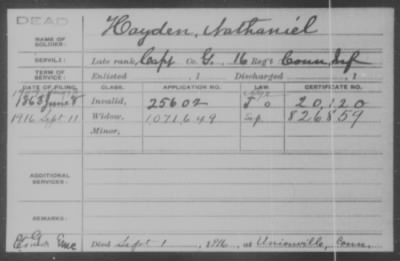 DEAD
NAME OF SOLDIER: Hayden, Nathaniel
SERVICE: Late rank, Capt Co. G, 16 Reg't Conn Inf
TERM OF SERVICE: Enlisted , 1 Discharged , 1
DATE OF FILING. CLASS. APPLICATION NO. LAW CERTIFICATE NO.
1863 June 8 Invalid, 25602 20,120
1916 Sept 11 Widow, 1,071,649 826859
Minor,
ADDITIONAL SERVICES:
REMARKS:
Died Sept 1, 1916, at Unionville, Conn.